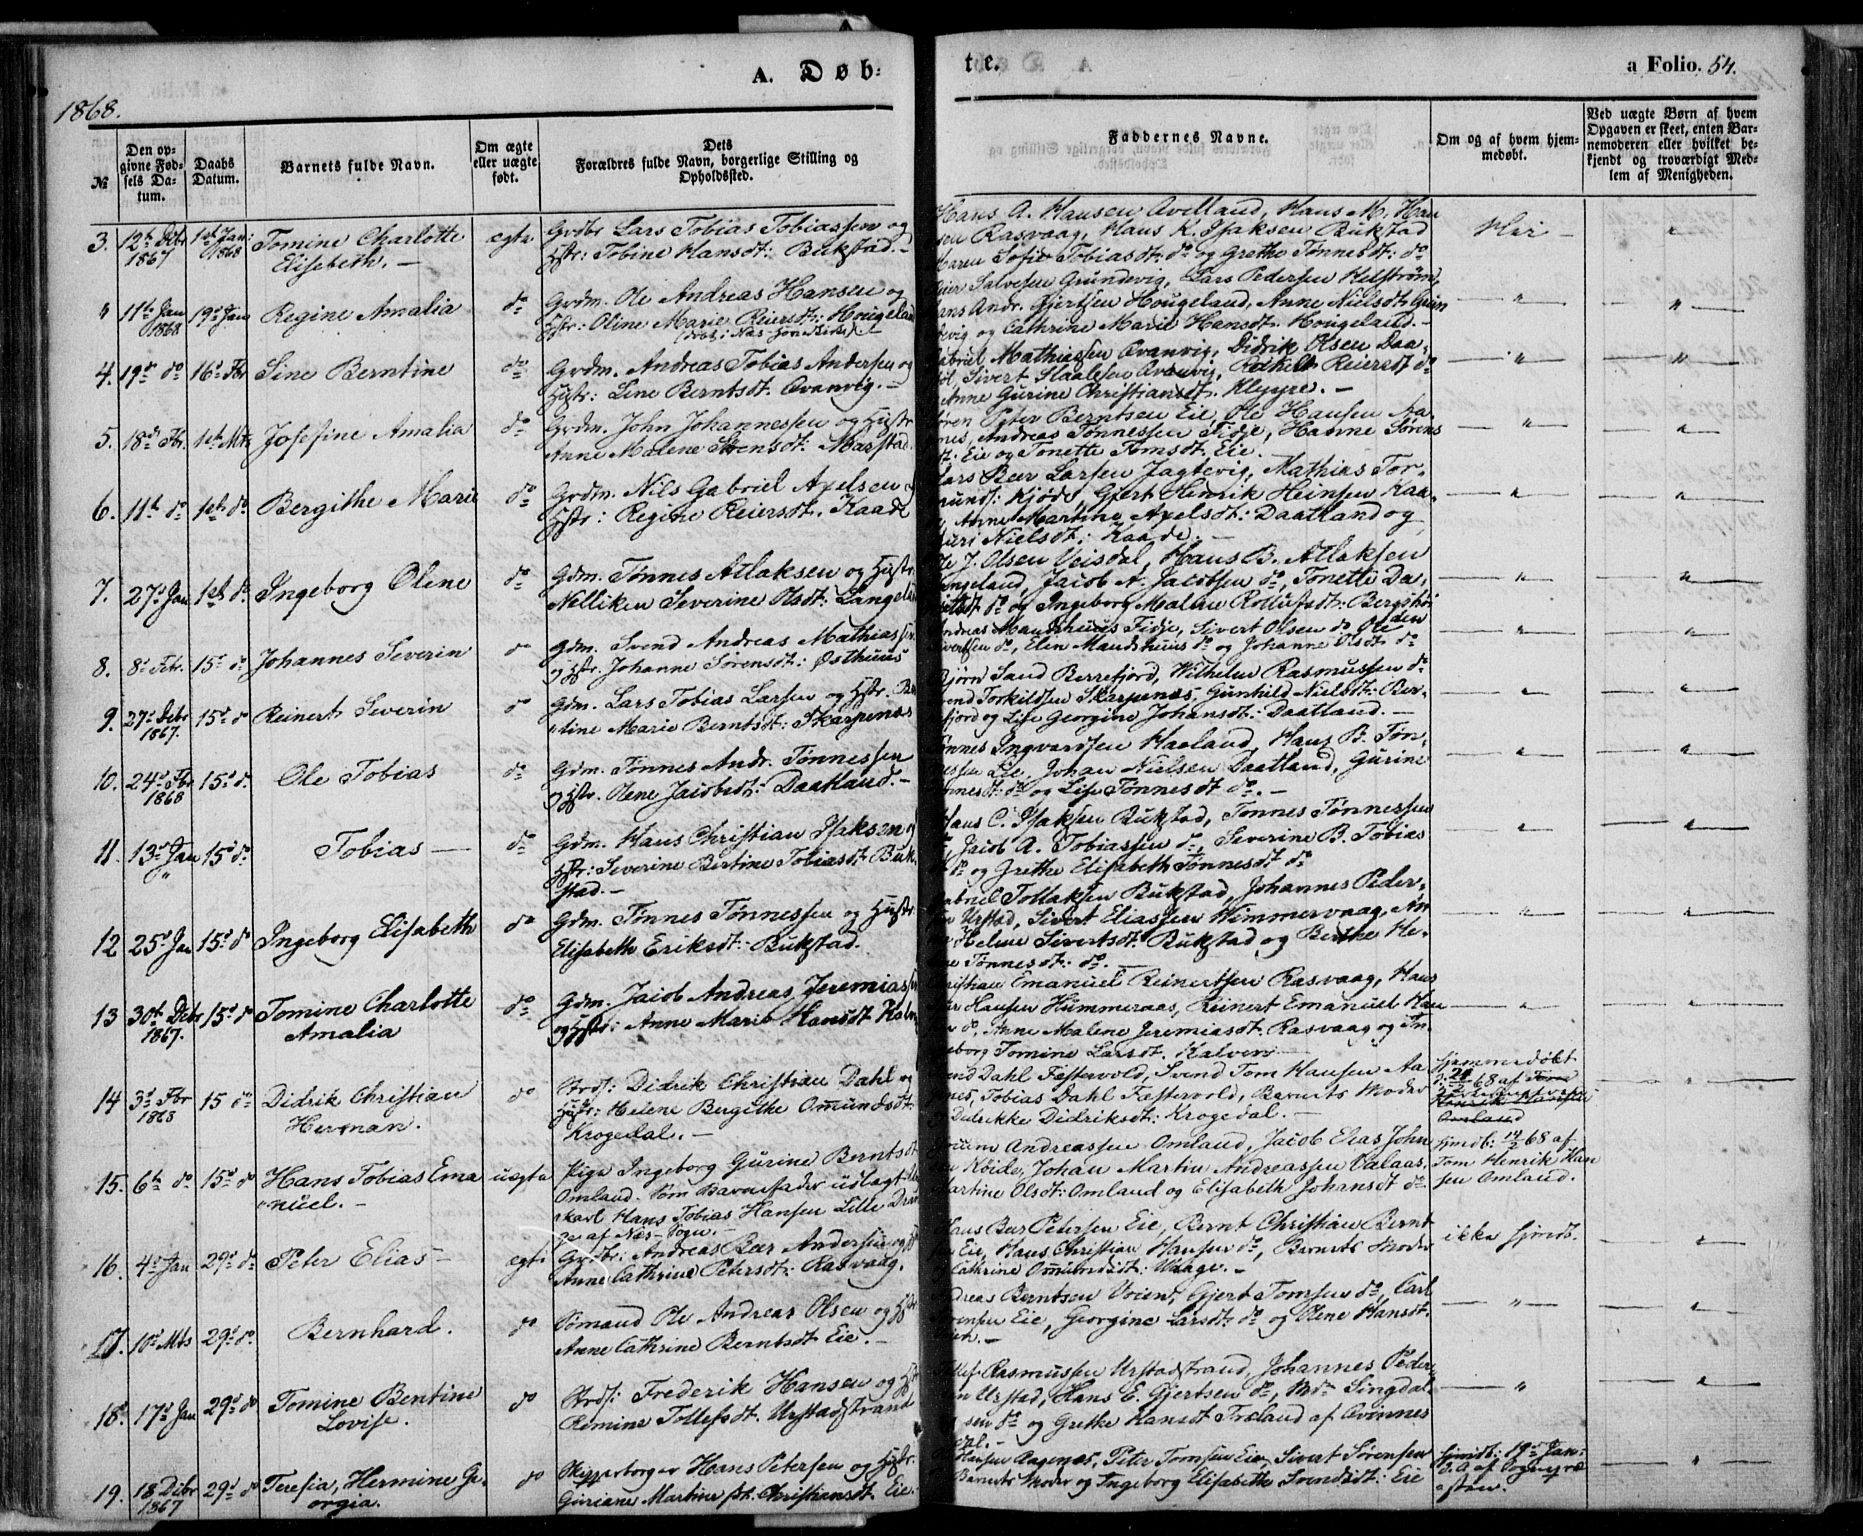 1868.
A. Døb-
te.
a Folio. 54.
№
Den op-
givne Fød-
sels Da-
tum.
Daabs
Datum.
Barnets fulde Navn.
Om ægte
eller uægte
født.
Dets
Forældres fulde Navn, borgerlige Stilling og
Opholdssted.
Faddernes Navne.
Om og af hvem hjem-
medøbt.
Ved uægte Børn af hvem
Opgaven er skeet, enten Bar-
nemoderen eller hvilket be-
kjendt og troværdigt Med-
lem af Menigheden.
3. 12te Dbr 1ste Jan: Tomine Charlotte ægte Grdbr Lars Tobias Tobiassen og
1867 1868 Elisabeth. — Hstr: Tobine Hansdt: Bukstad. —
Hans A. Hansen Avilland, Hans M. Han
sen Rasvaag, Hans K. Isaksen Bukstad
Maren Sofie Tobiasdt: do og Grethe Tønnesdt: do
" 11te Jan 19de Jan Regine Amalia do Grdm. Ole Andreas Hansen og
1868 Hstr: Oline Marie Reiersdt: Hougeland
Reier Salvesen Grundevig, Lars Pedersen Helstrøm,
Hans Andr. Gjertsen Hougeland, Anne Nielsdt: Grun
devig og Cathrine Marie Hansdt: Hougeland. —
4. 19de do 16de Fbr Sine Berntine do Grdm. Andreas Tobias Andersen og
Hstr: Line Berntsdt: Qvanvig. —
Gabriel Mathiassen Qvanvig, Didrik Olsen Daa-
Sivert Slaalesen Qvanvig, Rakel Reiersdt do
Anne Gurine Christiansdt.
5. 18de Fbr. 1ste Mts Josefine Amalia do Grdm. John Johannessen og Hustr
Anne Malene Stensdt: Marstad.
Søren Peter Berntsen Eie, Ole Hansen Aa-
nes, Andreas Tønnessen Fidje, Hanne Sørens
dt. Eie og Tonette Tomsdt. Eie.
6. 11te do 1ste do Bergithe Marie do Grdm. Nils Gabriel Axelsen og
Hstr: Regine Reiersdt. Kaade
Lars Beer Larsen Jagtevig, Mathias Tor-
Gjert Henrik Heinsen Kaa-
de, Anne Martine Axelsdt: Daatland og
Guri Nielsdt: Kaade. —
7. 27de Jan 1ste do Ingeborg Olene do Gdm. Tønnes Atlaksen og Hustr.
Nilliken Severine Olsdt: Langeland
J. Olsen Veisdal, Hans B. Atlaksen
Langeland, Jacob A. Jacobsen do, Tonette Da-
do og Ingeborg Malene
8. 8de Fbr. 15de do Johannes Severin do Gdm. Svend Andreas Mathiassen
og Hstr. Johanne Sørensdt: Østhuus
Andreas Maudshuus Fidje, Sivert Olsen do Ole
Sivertsen do, Elen Maudshuus do og Johanne Olsdt do
9. 27de Debr 15de do Reinert Severin do Gdm. Lars Tobias Larsen og Hstr. Ber
1867. tine Marie Berntsdt: Skarpenæs
Bjørn Sand Berrefjord, Wilhelm Rasmussen do
Svend Torkildsen Skarpenæs, Gunhild Nielsdt: Ber-
refjord og Lise Georgine Johansdt: Daatland. —
10. 24de Fbr 15de do. Ole Tobias do Gdm. Tønnes Andr. Tønnessen
1868 og Hstr. Olene Jacobsdt: Daatland. —
Tønnes Ingvardsen Haaland, Hans B. Tøn-
nessen Eie, Johan Nielsen Daatland, Gurine
Tønnesdt: do og Lise Tønnesdt do. —
11. 13de Jan 15de do Tobias — do Gdm. Hans Christian Isaksen og
Hstr: Severine Bertine Tobiasdt Buk-
stad. —
Hans C. Isaksen Bukstad, Tønnes Tønnessen
do, Jacob A. Tobiassen do, Severine B. Tobias
dt do og Grethe Elisabeth Tønnesdt do
12 25de Jan 15de do Ingeborg Elisabeth do Gdm. Tønnes Tønnessen og Hustr.
Elisabeth Eriksdt: Bukstad.
Gabriel Tollaksen Bukstad, Johannes Peder-
sen Urstad, Sivert Eliassen Himmervaag, An
ne Helene Sivertsdt: Bukstad og Berthe He-
ne Tønnesdt: do. —
13 30te Debr 15de do Tomine Charlotte do Gdm. Jacob Andreas Jeremiassen
1867. Amalia og Hstr: Anne Marie Hansdt Kalven
Christian Emanuel Reinertsen Rasvaag, Hans
Hansen Hummeraas, Reinert Emanuel Han
sen do, Anne Malene Jeremiasdt. Rasvaag og In-
geborg Tomine Larsdt. Kalven —
14 3de Fbr 15 do Didrik Christian do Strds: Didrik Christian Dahl og
1868 Herman. Hustr: Helene Bergithe Omundsdt:
Krogedal. —
Svend Dahl Fastervold, Svend Tom Hansen Aa
nes, Tobias Dahl Fastervold, Barnets Moder
Diderikke Didriksdt: Krogedal. —
Hjemmedøbt
68 af
Omland
15. 6te do 15de do Hans Tobias Ema uægte Pige Ingeborg Gurine Berntsdt
nuel. — Omland. Som Barnefader udlagt
karl Hans Tobias Hansen Lille
af Næs Sogn.
Andreassen Omland, Jacob Elias John
sen Køide, Johan Martin Andreassen Valaas,
Martine Olsdt: Omland og Elisabeth Johansdt do.
Hjmdb: 14/2 68 af
Tom Henrik Han
sen Omland.
16. 4de Jan 29de do Peter Elias — ægte Grdbr: Andreas Beer Andersen og H
Anne Cathrine Petersdt: Rasvaag.
Hans Beer Petersen Eie, Bernt Christian Bernt
sen Eie, Hans Christian Hansen do, Barnets Moder
Cathrine Omundsdt: Waage. —
ikke hjmdb.
17. 10de Mts 29de do. Bernhard. do Sømand Ole Andreas Olsen og Hstr
Anne Cathrine Berntsdt Eie. —
Andreas Berntsen Voien, Gjert Tomsen do, Carl
Sørensen Eie, Georgine Larsdt: do og Olene Hansdt.
18. 17de Jan 29de do Tomine Bentine do Strds: Frederik Hansen og Hstr
Lovise. Romine Tollefsdt. Urstadstrand
Tollef Rasmussen Urstadstrand, Johannes Peder
sen Urstad, Hans E. Gjertsen do, Mdm Singdal-
sen do og Grethe Hansdt Træland af Qvinnes
dal. —
19. 18 Dcbr 29de do Teresia, Hermine Ge- do Skipperborger Hans Petersen og Hstr.
1867 orgia. Guriane Martine f. Christiansdt. Eie.
Hansen Aagenæs, Peter Tomsen Eie, Sivert Sørensen
Barnets Moder og Ingeborg Elisabeth Svendsdt: Eie
Hjmdb: 19de Jan:
d. A. af Sognepræ
sten.